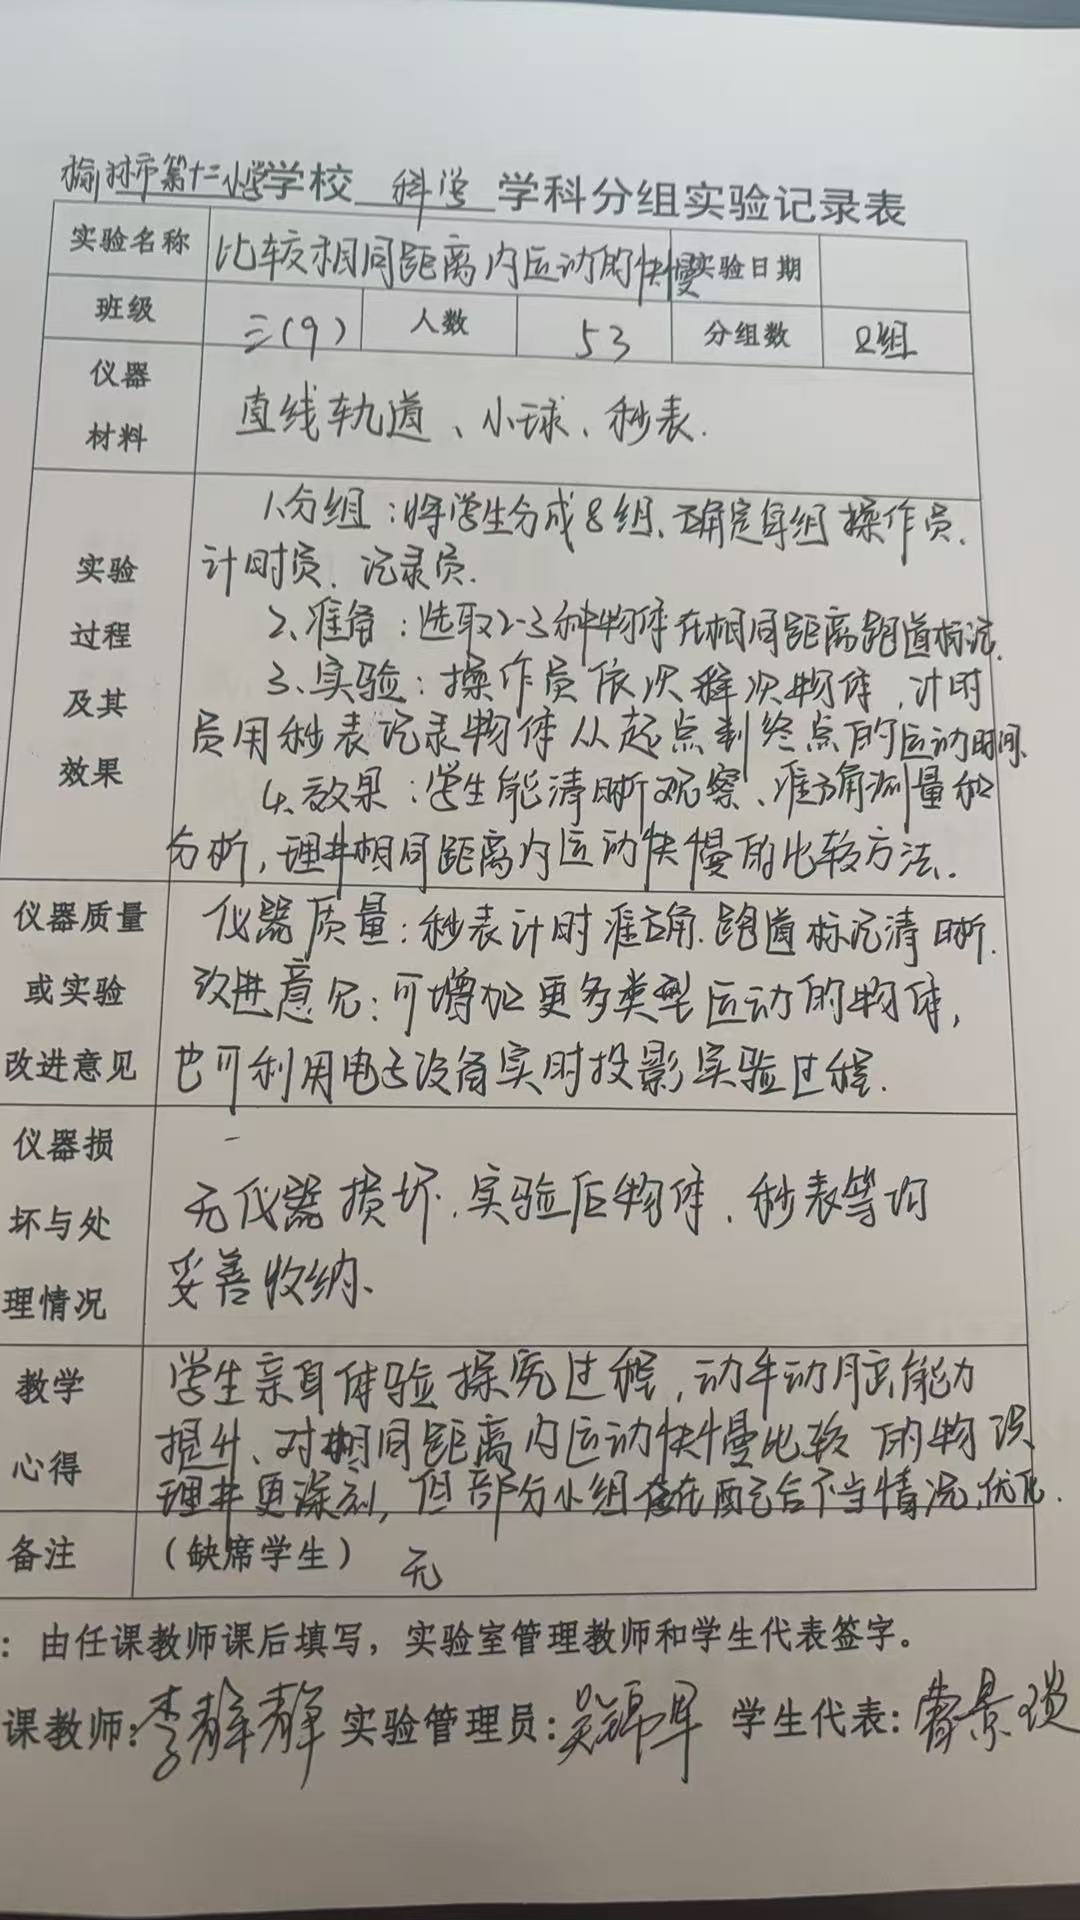 榆林市第十二小学学校 科学 学科分组实验记录表
实验名称 比较相同距离内运动的快慢 实验日期
班级 三(9) 人数 53 分组数 8组
仪器材料 直线轨道、小球、秒表.
实验过程及其效果
1.分组:将学生分成8组、确定每组操作员.
计时员、记录员.
2.准备:选取2-3种物体在相同距离跑道标记.
3.实验:操作员依次释次物体,计时
员用秒表记录物体从起点到终点的运动时间.
4.效果:学生能清晰观察、准确测量和
分析,理井相同距离内运动快慢的比较方法.
仪器质量或实验改进意见
仪器质量:秒表计时准确.跑道标记清晰.
改进意见:可增加更多类型运动的物体,
也可利用电子设备实时投影实验过程.
仪器损坏与处理情况
无仪器损坏.实验后物体、秒表等均
妥善收纳.
教学心得
学生亲身体验探究过程,动手动脑能力
提升、对相同距离内运动快慢比较的物识
理井更深刻,但部分小组存在配合不当情况,优化.
备注 (缺席学生) 无
:由任课教师课后填写,实验室管理教师和学生代表签字。
课教师:李静静 实验管理员: 学生代表: